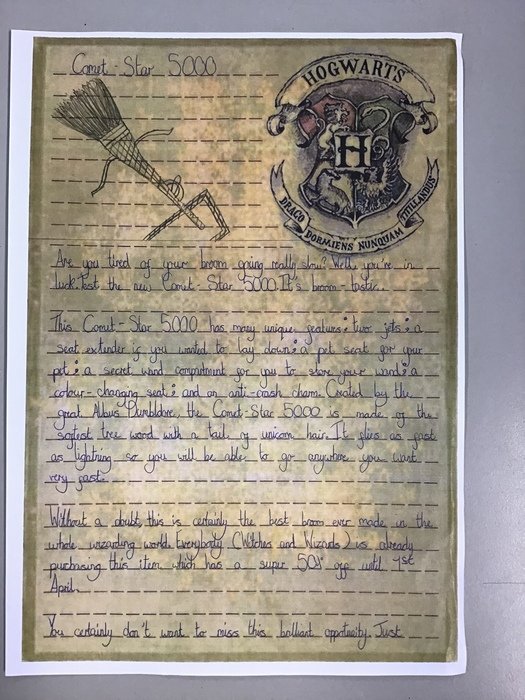 Comet-Star 5000
HOGWARTS
H
DRACO DORMIENS NUNQUAM TITILLANDUS
Are you tired of your broom going really slow? Well, you're in
luck. Test the new Comet-Star 5000. It's broom-tastic.
This Comet-Star 5000 has many unique features: two jets; a
seat extender if you wanted to lay down; a pet seat for your
pet; a secret wand compartment for you to store your wand; a
colour-changing seat; and an anti-crash charm. Created by the
great Albus Dumbldore, the Comet-Star 5000 is made of the
softest tree wood with a tail of unicorn hair. It flies as fast
as lightning so you will be able to go anywhere you want
very fast.
Without a doubt this is certainly the best broom ever made in the
whole wizarding world. Everybody (Witches and Wizards) is already
purchasing this item which has a super off until 1st
April.
You certainly don't want to miss this brilliant Just